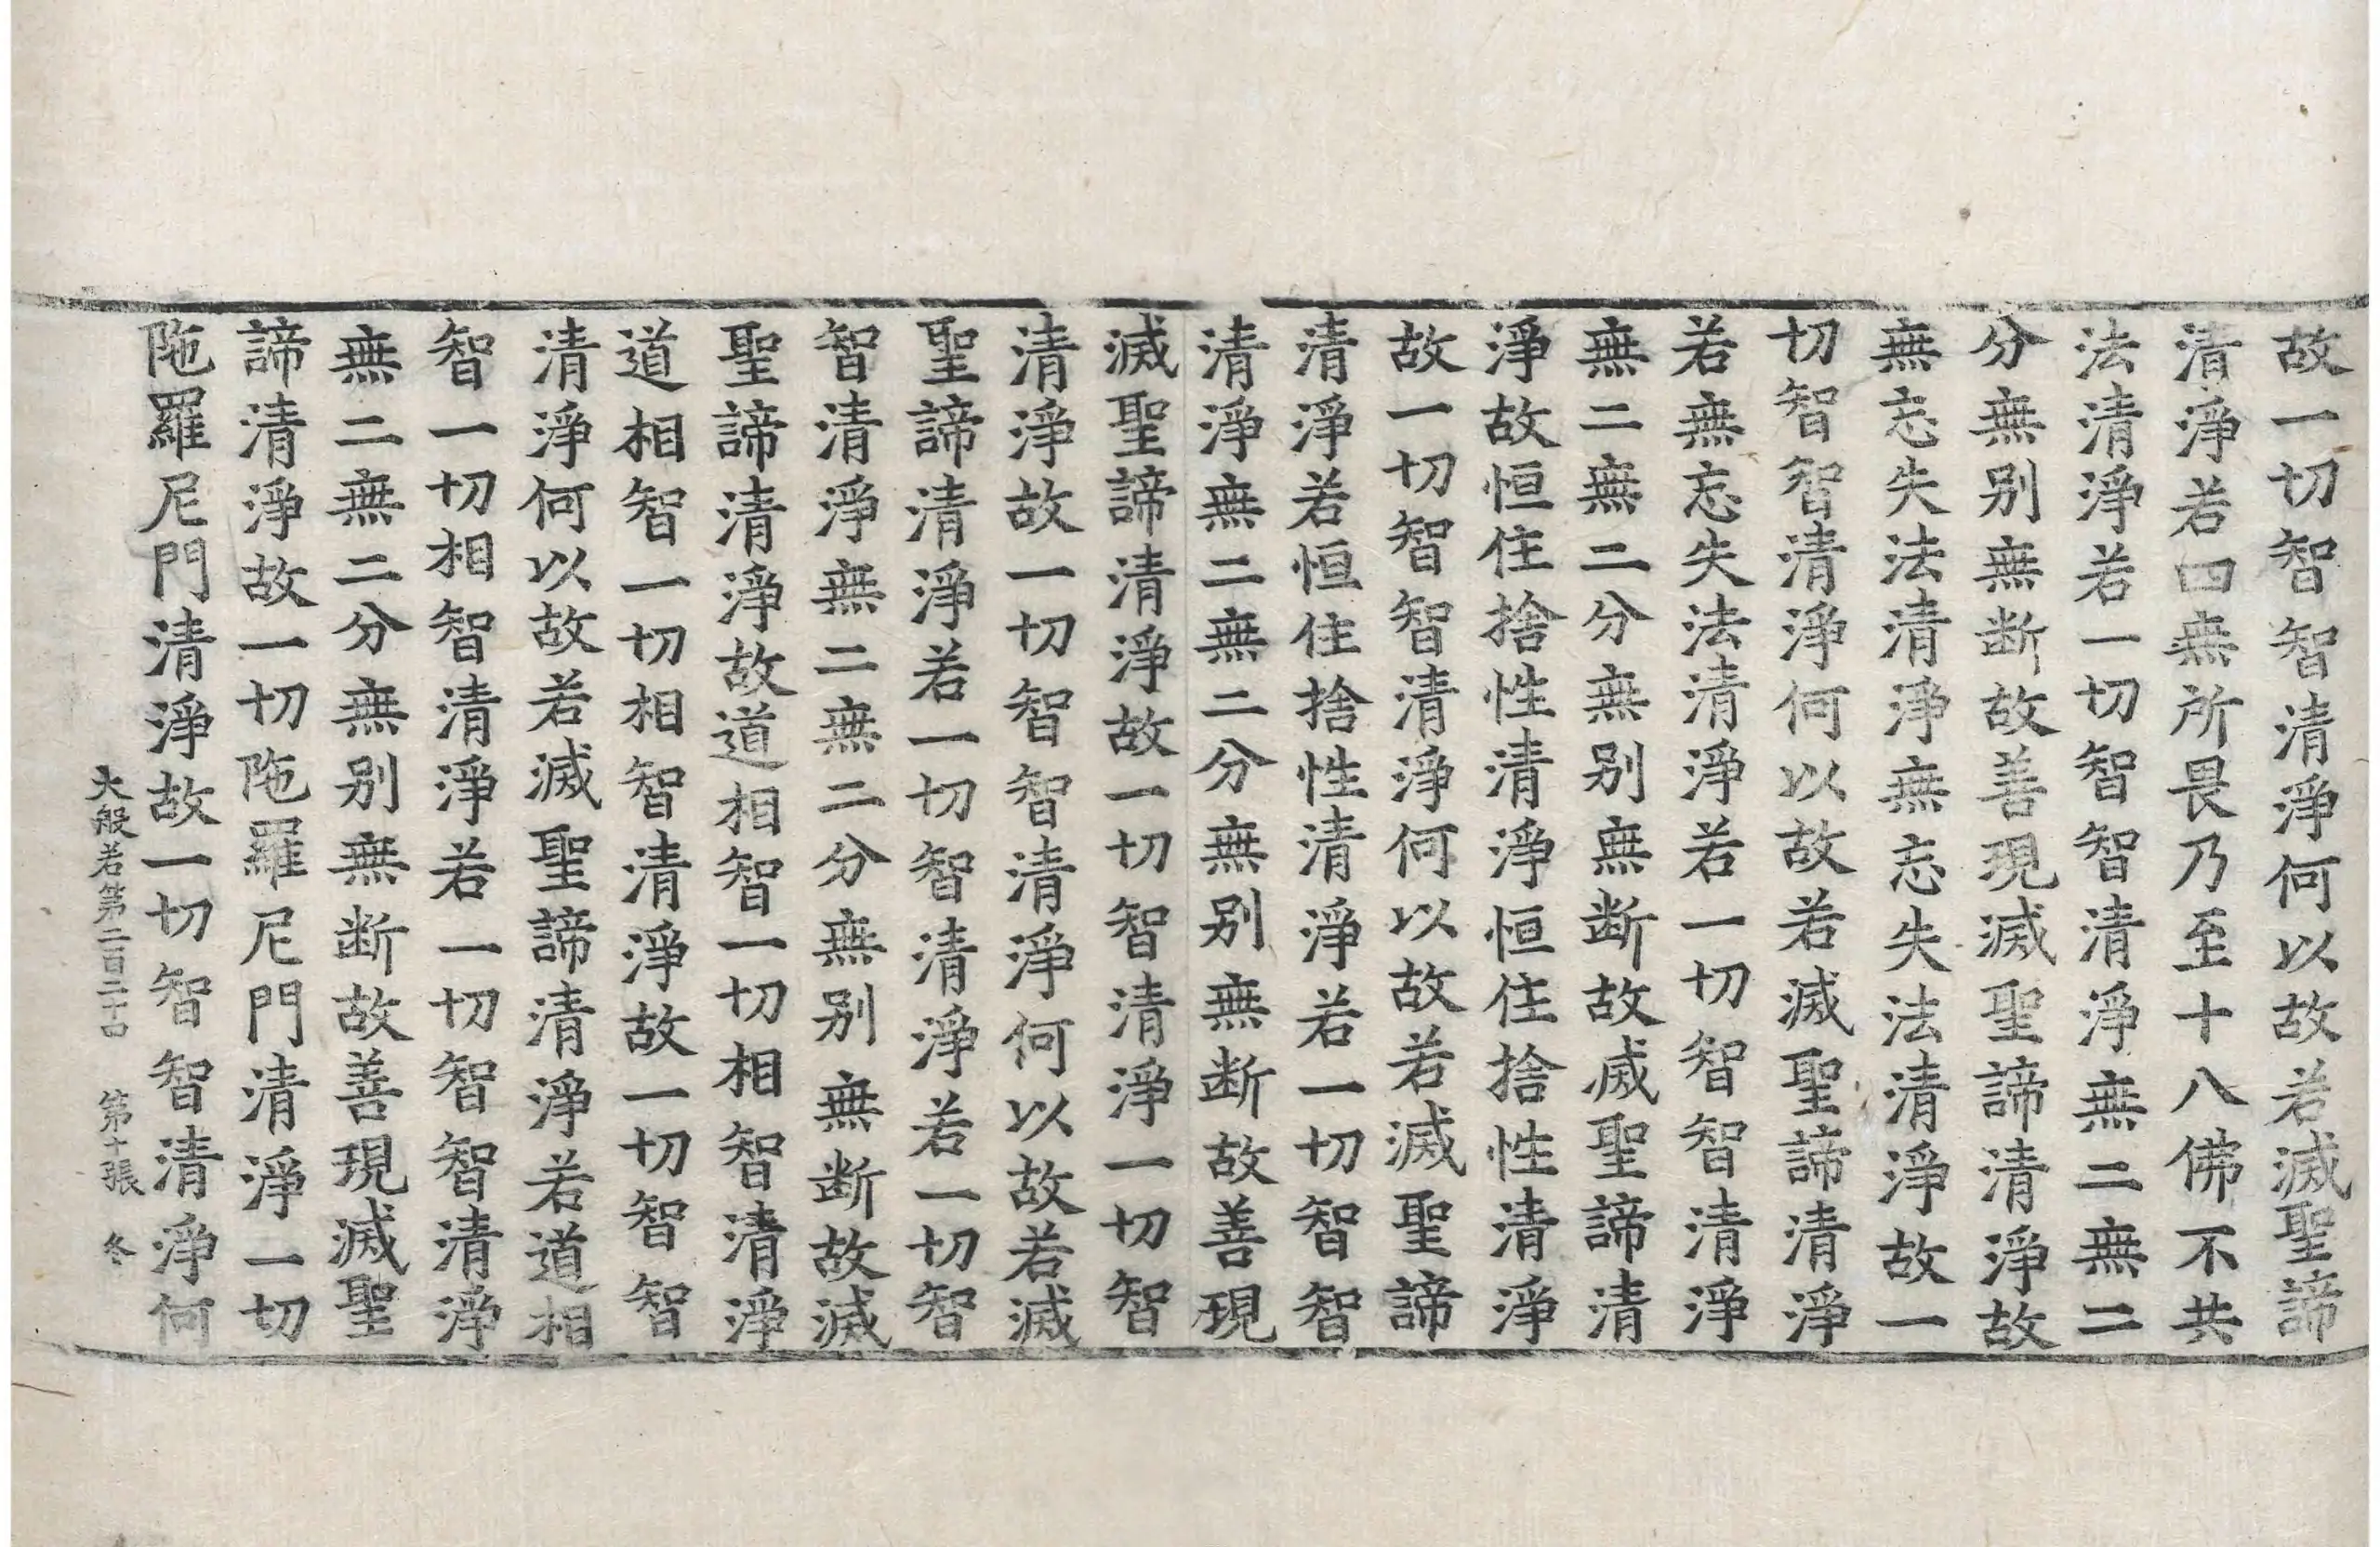 故一切智智清淨何以故若滅聖諦
清淨若四無所畏乃至十八佛不共
法清淨若一切智智清淨無二無二
分無别無断故善現滅聖諦清淨故
無忘失法清淨無忘失法清淨故一
切智智清淨何以故若滅聖諦清淨
若無忘失法清淨若一切智智清淨
無二無二分無别無断故滅聖諦清
淨故恒住捨性清淨恒住捨性清淨
故一切智智清淨何以故若滅聖諦
清淨若恒住捨性清淨若一切智智
清淨無二無二分無别無断故善現
滅聖諦清淨故一切智清淨一切智
清淨故一切智智清淨何以故若滅
聖諦清淨若一切智清淨若一切智
智清淨無二無二分無别無断故滅
聖諦清淨故道相智一切相智清淨
道相智一切相智清淨故一切智智
清淨何以故若滅聖諦清淨若道相
智一切相智清淨若一切智智清淨
無二無二分無别無断故善現滅聖
諦清淨故一切陁羅尼門清淨一切
陁羅尼門清淨故一切智智清淨何
大般若第二百二十四 第十張 冬